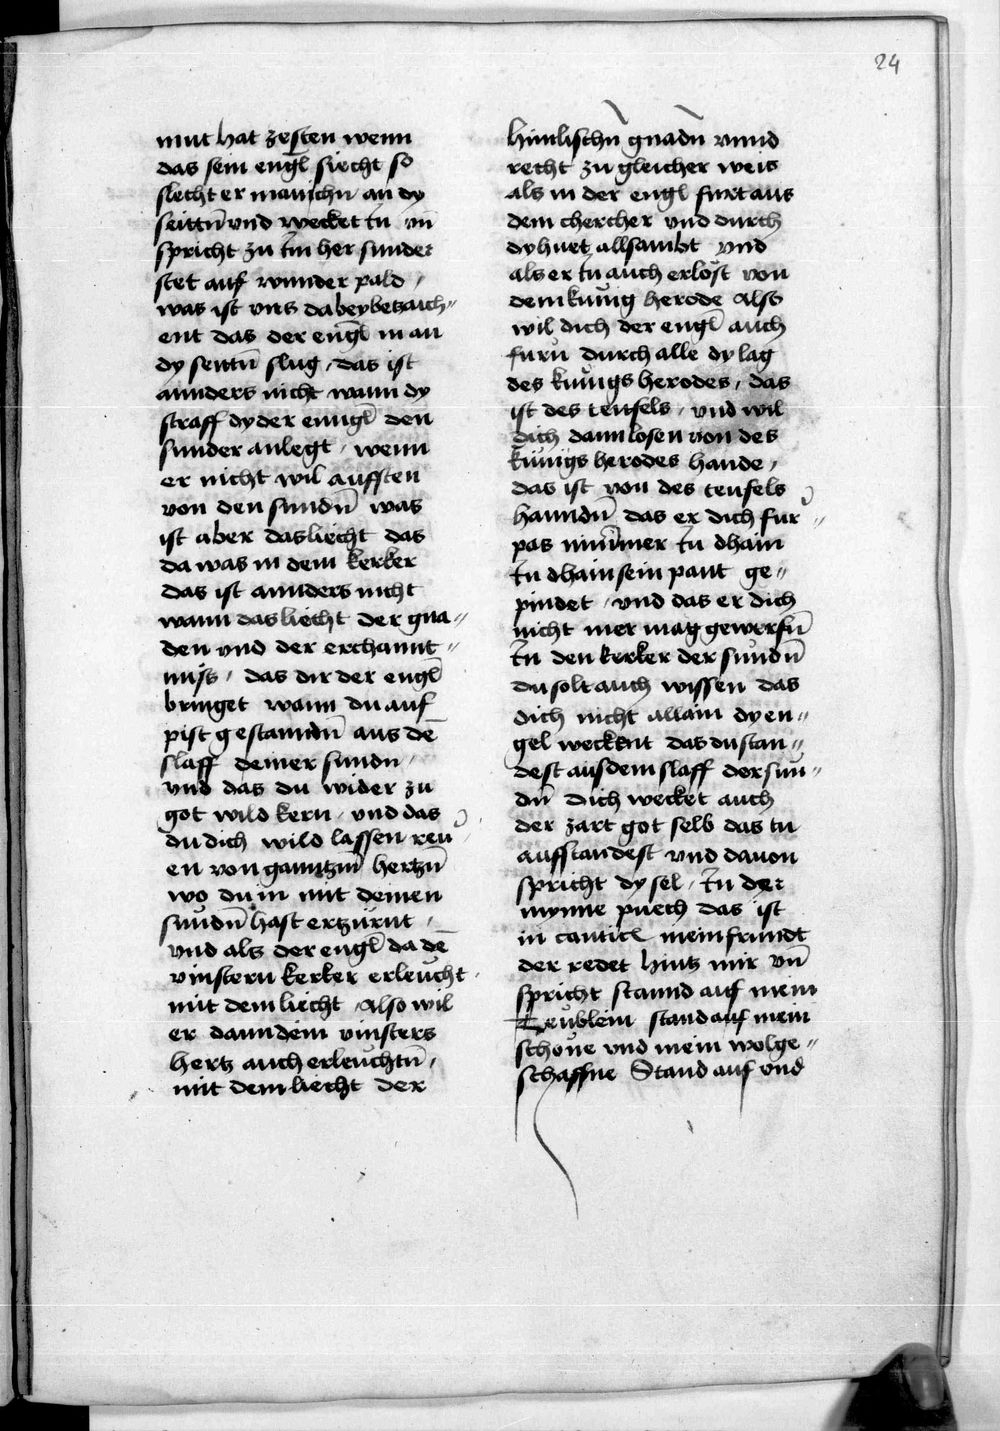 24
mut hat zesten wenn
das sein engl siecht so
slecht er manichn̄ an dy
seittn̄ vnd wecket in vn̄
spricht zu im her sunder
stet auf wunder pald /
was ist vns dabey betzaich〃
ent das der engl̄ in an
dy seittn̄ slug / das ist
annders nicht wann dy
straff dy der enngl̄ den
sunder anlegt / wenn
er nicht wil aufsten
von den sundn̄ was
ist aber das liecht das
da was in dem kerker
das ist annders nicht
wann das liecht der gna〃
den vnd der erchannt〃
nuss / das dir der engl̄
bringet wann du auf
pist gestanndn̄ aus dē
slaff deiner sundn /
vnd das du wider zu
got wild kern / vnd das
du dich wild lassen reu
en von ganntzm̄ hertzn̄
wo du in mit deinen
sundn̄ hast ertzürnt /
vnd als der engl̄ da dē
vinstern kerker erleucht
mit dem liecht / Also wil
er dann dem vinsters
hertz auch erleuchtn̄ /
mit dem liecht der
himlischn̄ gnadn̄ vnnd
recht zu gleicher weis
als in der engl furt aus
dem chercher vnd durch
dy huet allsambt vnd
als er in auch erlost von
dem kunig herode also
wil dich der engl̄ auch
furn̄ durch alle dy lag
des kunigs herodes / das
ist des teufels / vnd wil
dich dann losen von des
kunigs herodes hande /
das ist von des teufels
hanndn̄ das er dich fur〃
pas nimmer in dhain
in dhain sein pant ge〃
pindet / vnd das er dich
nicht mer mag gewerfn̄
in den kerker der sundn̄
du solt auch wissen das
dich nicht allain dy en〃
gel weckent das du stan〃
dest aus dem slaff der sun〃
dn̄ dich wecket auch
der zart got selb das tu
aufstandest vnd dauon
spricht dy sel / in der
mynne puech das ist
in cantic̄ mein frundt
der redet hintz mir vn̄
spricht stannd auf mein
Teublein stand auf mein
schone vnd mein wolge〃
schaffne Stand auf vnd